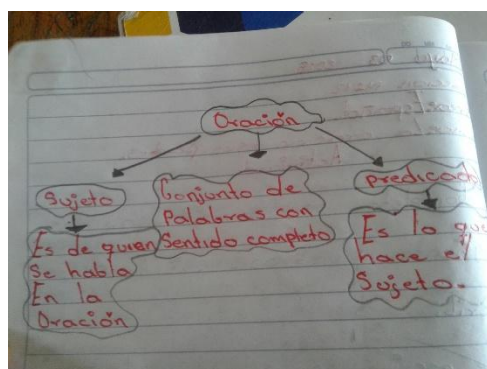 Oración
Sujeto
Es de quien
Se habla
En la
Oración
Conjunto de
Palabras con
Sentido completo
Predicado
Es lo que
hace el
Sujeto.